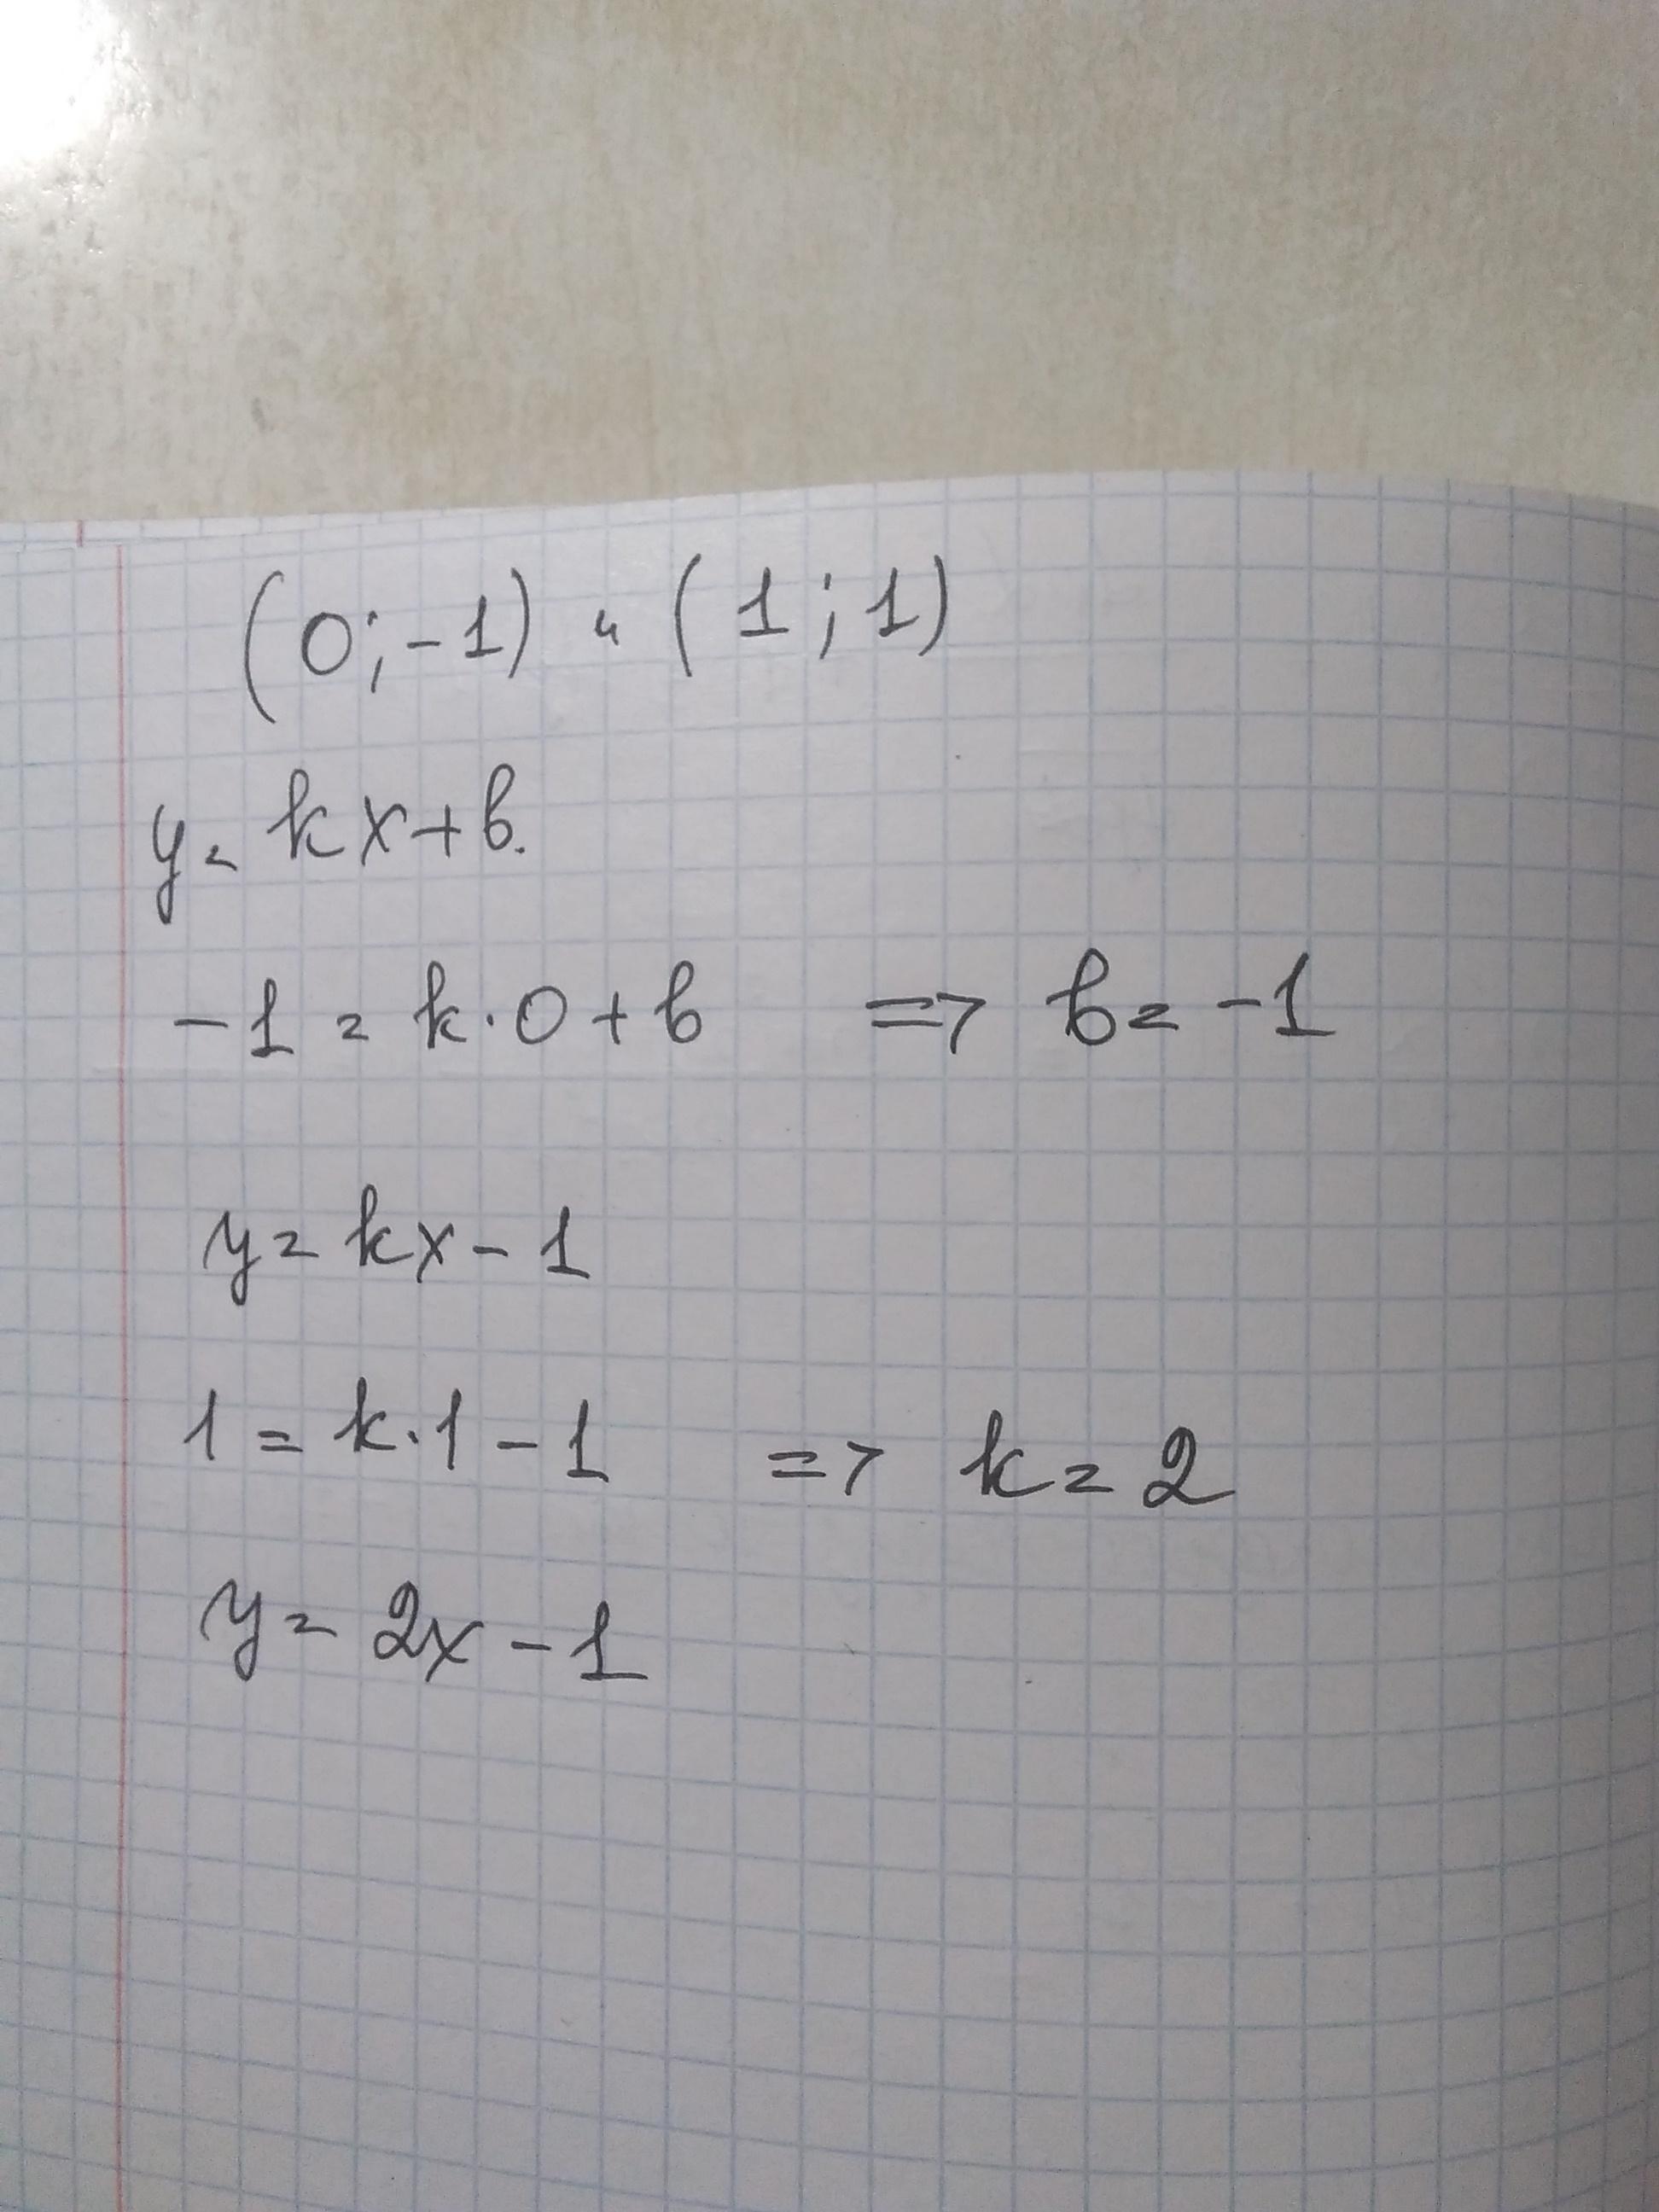 (0;-1) и (1;1)
y = kx+b.
-1 = k·0+b => b = -1
y = kx - 1
1 = k·1 - 1 => k = 2
y = 2x - 1